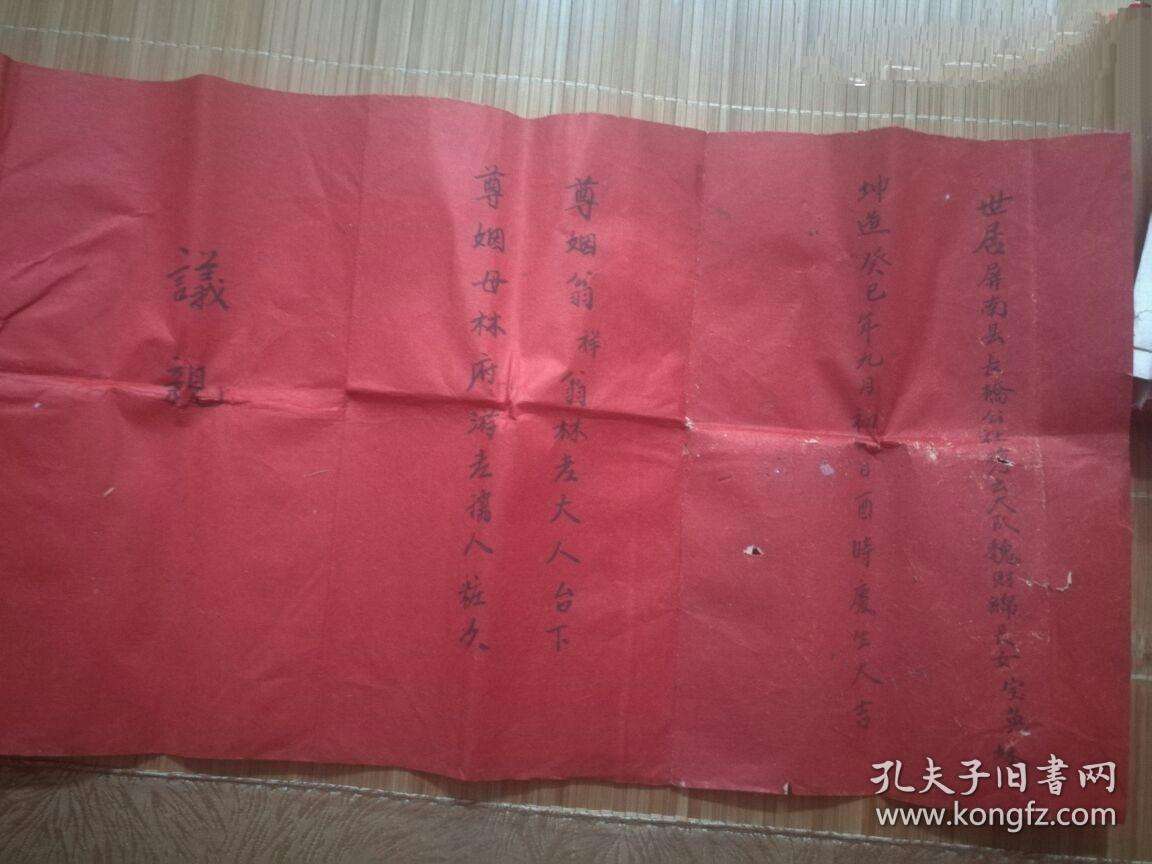 世居屏南县長橋公社 大队魏 長女宝英
坤造癸巳年九月初 日酉時慶生大吉
尊姻翁祥翁林老大人台下
尊姻母林府游老孺人粧次
議親
孔夫子旧書网
www.kongfz.com